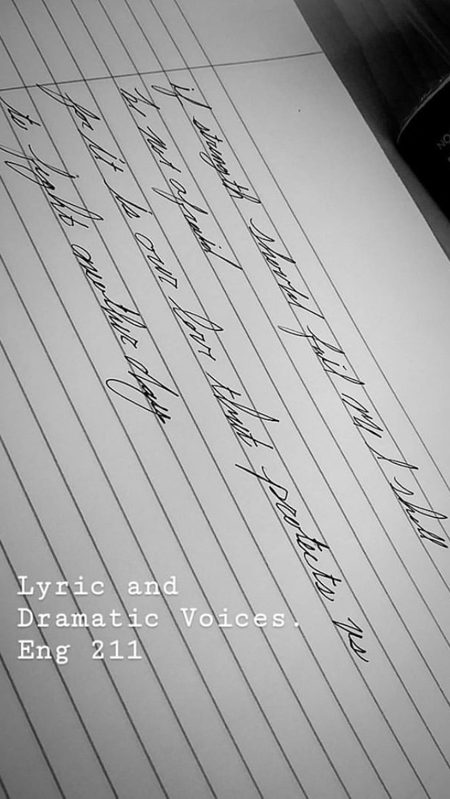 if strength should fail me I shall
be not afraid
for it is our love that protects us
to fight another day
Lyric and
Dramatic Voices.
Eng 211